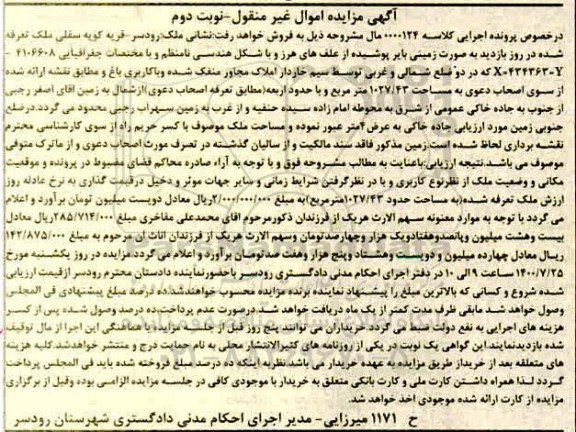 آگهی مزایده اموال غیر منقول-نوبت دوم
درخصوص پرونده اجرایی کلاسه ۰۰۰۰۱۲۴ مال مشروحه ذیل به فروش خواهد رفت:نشانی ملک:رودسر-قریه کویه سفلی ملک تعرفه
شده در روز بازدید به صورت زمینی بایر پوشیده از علف های هرز و با شکل هندسی نامنظم و با مختصات جغرافیایی ۴۱۰۶۶۰۸-
X=۴۲۴۳۶۳-Y که در دو ضلع شمالی و غربی توسط سیم خاردار املاک مجاور منفک شده وباکاربری باغ و مطابق نقشه ارائه شده
از سوی اصحاب دعوی به مساحت ۱۰۲۷/۴۳ متر مربع و با حدود اربعه(مطابق تعرفه اصحاب دعوی)ازشمال به زمین اقای اصغر رجبی
از جنوب به جاده خاکی عمومی از شرق به محوطه امام زاده سیده حنفیه و از غرب به زمین سهراب رجبی محدود می گردد.درضلع
جنوبی زمین مورد ارزیابی جاده خاکی به عرض۴متر عبور نموده و مساحت ملک موصوف با کسر حریم راه از سوی کارشناسی محترم
نقشه برداری لحاظ شده است.زمین مذکور فاقد سند مالکیت و از سالیان گذشته در تصرف مورث اصحاب دعوی و از ماترک متوفی
موصوف می باشد.نتیجه ارزیابی:باعنایت به مطالب مشروحه فوق و با توجه به آراء صادره محاکم قضای مضبوط در پرونده و موقعیت
مکانی و وضعیت ملک از نظرنوع کاربری و با در نظرگرفتن شرایط زمانی و سایر جهات موثر و دخیل درقیمت گذاری به نرخ عادله روز
ارزش ملک تعرفه شده(به مساحت حدود ۱۰۲۷/۴۳مترمربع)به مبلغ ۲/۰۰۰/۰۰۰/۰۰۰ریال معادل دویست میلیون تومان برآورد و اعلام
می گردد با توجه به موارد معنونه سهم الارث هریک از فرزندان ذکورمرحوم اقای محمدعلی مفاخری مبلغ ۲۸۵/۷۱۴/۰۰۰ریال معادل
بیست وهشت میلیون وپانصدوهفتادویک هزار وچهارصدتومان وسهم الارث هریک از فرزندان اناث آن مرحوم به مبلغ ۱۴۲/۸۷۵/۰۰۰
ریال معادل چهارده میلیون و دویست وهشتاد وپنج هزار وهفت صدتومان برآورد و اعلام می گردد مزایده در روز یکشنبه مورخ
۱۴۰۰/۷/۲۵ ساعت ۹ الی ۱۰ در دفتر اجرای احکام مدنی دادگستری رودسر باحضورنماینده دادستان محترم رودسر ازقیمت ارزیابی
شده شروع و کسانی که بالاترین مبلغ را پیشنهاد نماینده برنده مزایده محسوب خواهندشد.ده درصد مبلغ پیشنهادی فی المجلس
وصول خواهد شد مابقی ظرف مدت کمتر از یک ماه دریافت خواهد شد.درصورت عدم پرداخت،ده درصد وصول شده پس از کسر
هزینه های اجرایی به نفع دولت ضبط می گردد.خریداران می توانند پنج روز قبل از جلسه مزایده با هماهنگی این اجرا از مال توقیف
شده بازدیدنمایند.این گواهی یک نوبت در یکی از روزنامه های کثیرالانتشار محلی به نام حمایت درج و منتشر خواهدشد.کلیه هزینه
های متعلقه بعد از خریداز طریق مزایده به عهده خریدار می باشد.نظربه اینکه ده درصد مبلغ فروخته شده باید فی المجلس پرداخت
گردد لذا همراه داشتن کارت ملی و کارت بانکی متعلق به خریدار با موجودی کافی در جلسه مزایده الزامی بوده وقبل از برگزاری
مزایده از کارت ارائه شده موجودی اخذ خواهد شد.
ح ۱۱۷۱ میرزایی- مدیر اجرای احکام مدنی دادگستری شهرستان رودسر